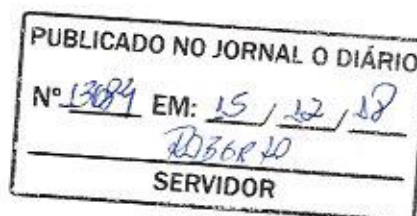 PUBLICADO NO JORNAL O DIÁRIO
Nº 13684 EM: 15 / 12 / 18
ROBERTO
SERVIDOR